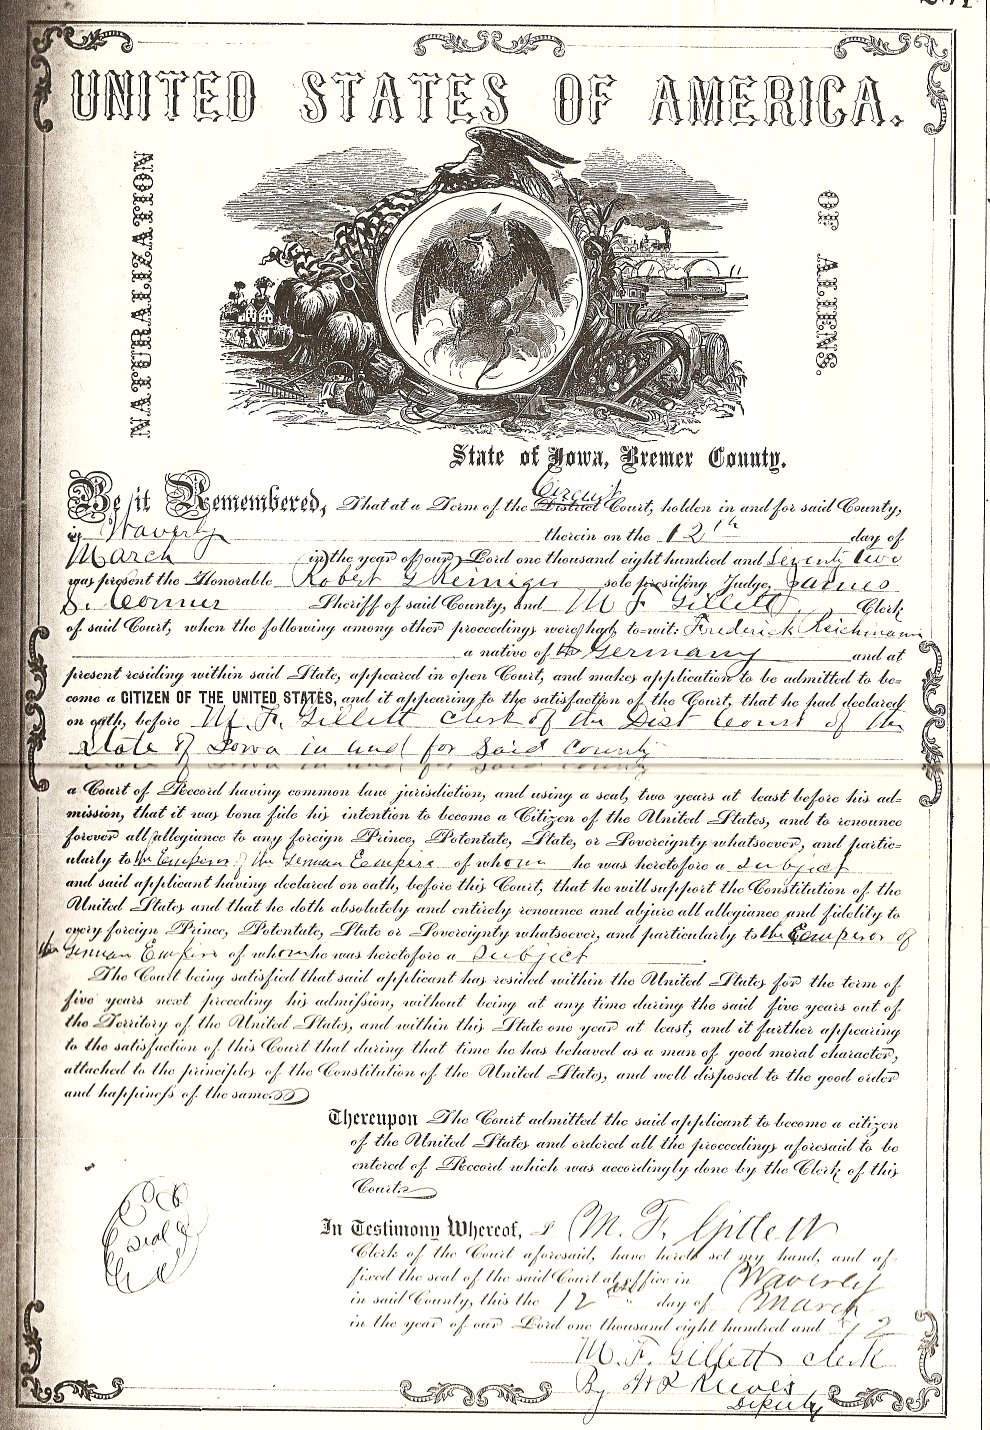 UNITED STATES OF AMERICA.
NATURALIZATION
OF ALIENS.
State of Iowa, Bremer County.
Circuit
Be it Remembered, That at a Term of the District Court, holden in and for said County,
in Waverly therein on the 12th day of
March (in the year of our) Lord one thousand eight hundred and Seventy two
was present the Honorable Robert G Reiniger sole presiding Judge, James
S. Conner Sheriff of said County, and M F Gillett Clerk
of said Court, when the following among other proceedings were had to-wit: Frederick Reichmann
a native of the Germany and at
present residing within said State, appeared in open Court, and makes application to be admitted to be-
come a CITIZEN OF THE UNITED STATES, and it appearing to the satisfaction of the Court, that he had declared
on oath, before M. F. Gillett Clerk of the Dist Court of the
State of Iowa in and for Said County
a Court of Record having common law jurisdiction, and using a seal, two years at least before his ad-
mission, that it was bona fide his intention to become a Citizen of the United States, and to renounce
forever all allegiance to any foreign Prince, Potentate, State, or Sovereignty whatsoever, and partic-
ularly to the Emperor of the German Eempire of whom he was heretofore a Subject
and said applicant having declared on oath, before this Court, that he will support the Constitution of the
United States and that he doth absolutely and entirely renounce and abjure all allegiance and fidelity to
every foreign Prince, Potentate, State or Sovereignty whatsoever, and particularly to the Eemperor of
the German Empire of whom he was heretofore a Subject
The Court being satisfied that said applicant has resided within the United States for the term of
five years next preceding his admission, without being at any time during the said five years out of
the Territory of the United States, and within this State one year at least, and it further appearing
to the satisfaction of this Court that during that time he has behaved as a man of good moral character,
attached to the principles of the Constitution of the United States, and well disposed to the good order
and happiness of the same.
Thereupon The Court admitted the said applicant to become a citizen
of the United States and ordered all the proceedings aforesaid to be
entered of Record which was accordingly done by the Clerk of this
Court.
Seal
In Testimony Whereof, I M. F. Gillett
Clerk of the Court aforesaid, have hereto set my hand, and af-
fixed the seal of the said Court at office in Waverly
in said County, this the 12 day of March
in the year of our Lord one thousand eight hundred and 72
M. F. Gillett Clerk
By Reeves
Deputy